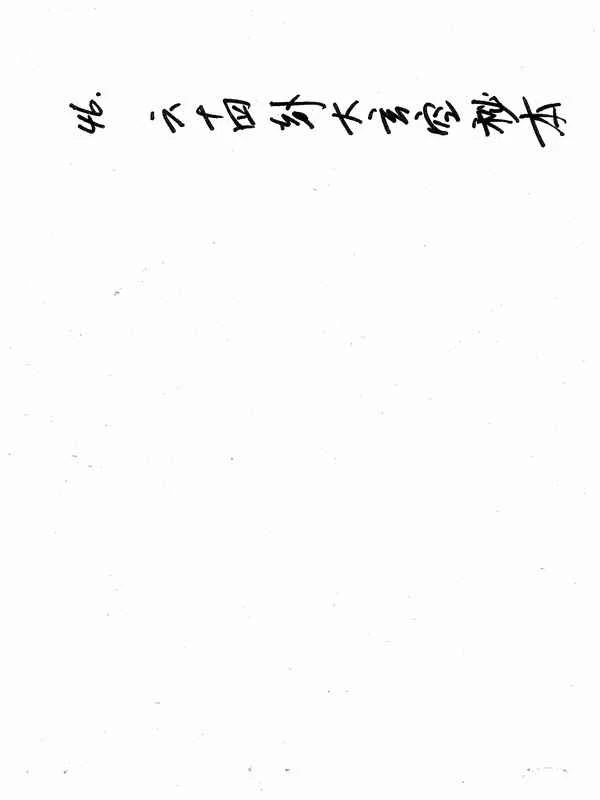 46. 六十四卦大玄空秘本